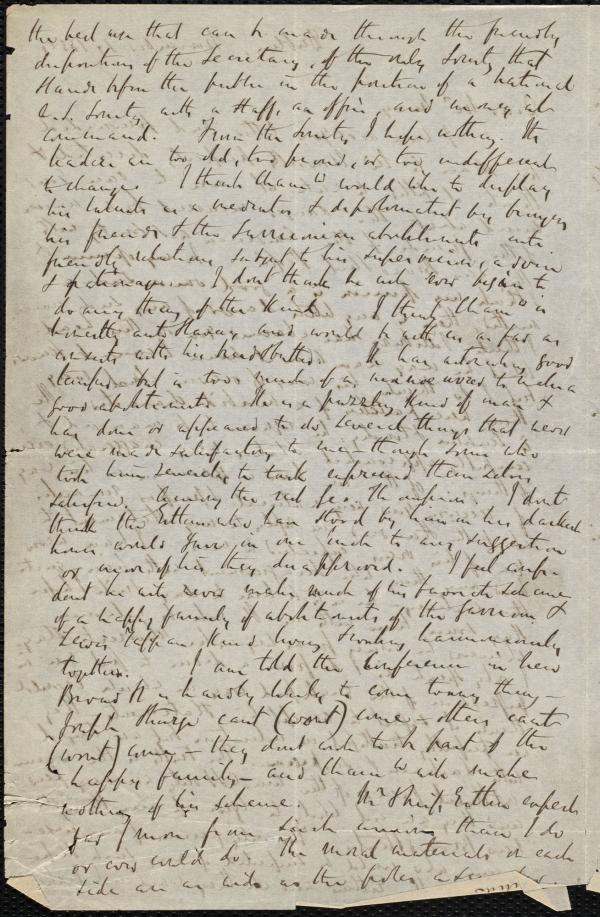 the best use that can be made through the friendly
disposition of the Secretary, of the only Society that
stands before the public in the position of a national
A.S. Society with a Staff, an office and money at
command. From the Society I hope nothing. Its
leaders are too old, too proud, or too indifferent
to change. I think Cham^d would like to display
his talents as a mediator & diplomatist by bringing
his friends & the Garrisonian abolitionists into
friendly relations subject to his supervision, advice
& patronage. I dont think he will ever begin to
do any thing of the kind. I think Cham^d is
honestly anti slavery and would be with us as far as
consists with his bread & butter. He has astonishing good
temper but is too much of a to make a
good abolitionist. He is a puzzling kind of man &
has done or appeared to do several things that never
were made satisfactory to me – though some who
took him severely to task expressed themselves
satisfied. Among the rest Geo. Thompson. I dont
think the Estlins who have stood by him in his darkest
hours would give in one inch to any suggestion
or move of his they disapproved. I feel confi-
dent he will never make much of his favorite scheme
of a happy family of abolitionists of the Garrison &
Lewis Tappan kind living & working harmoniously
together. I am told the Conference in New
Broad St is hardly likely to come to any thing –
Joseph Sturge cant (wont) come – others cant
(wont) come – they dont wish to be part of the
happy family – and Cham^d will make
nothing of his scheme. Miss Estlin expects
far more from such union than I do
or ever could do. The moral materials on each
side are as wide as the poles